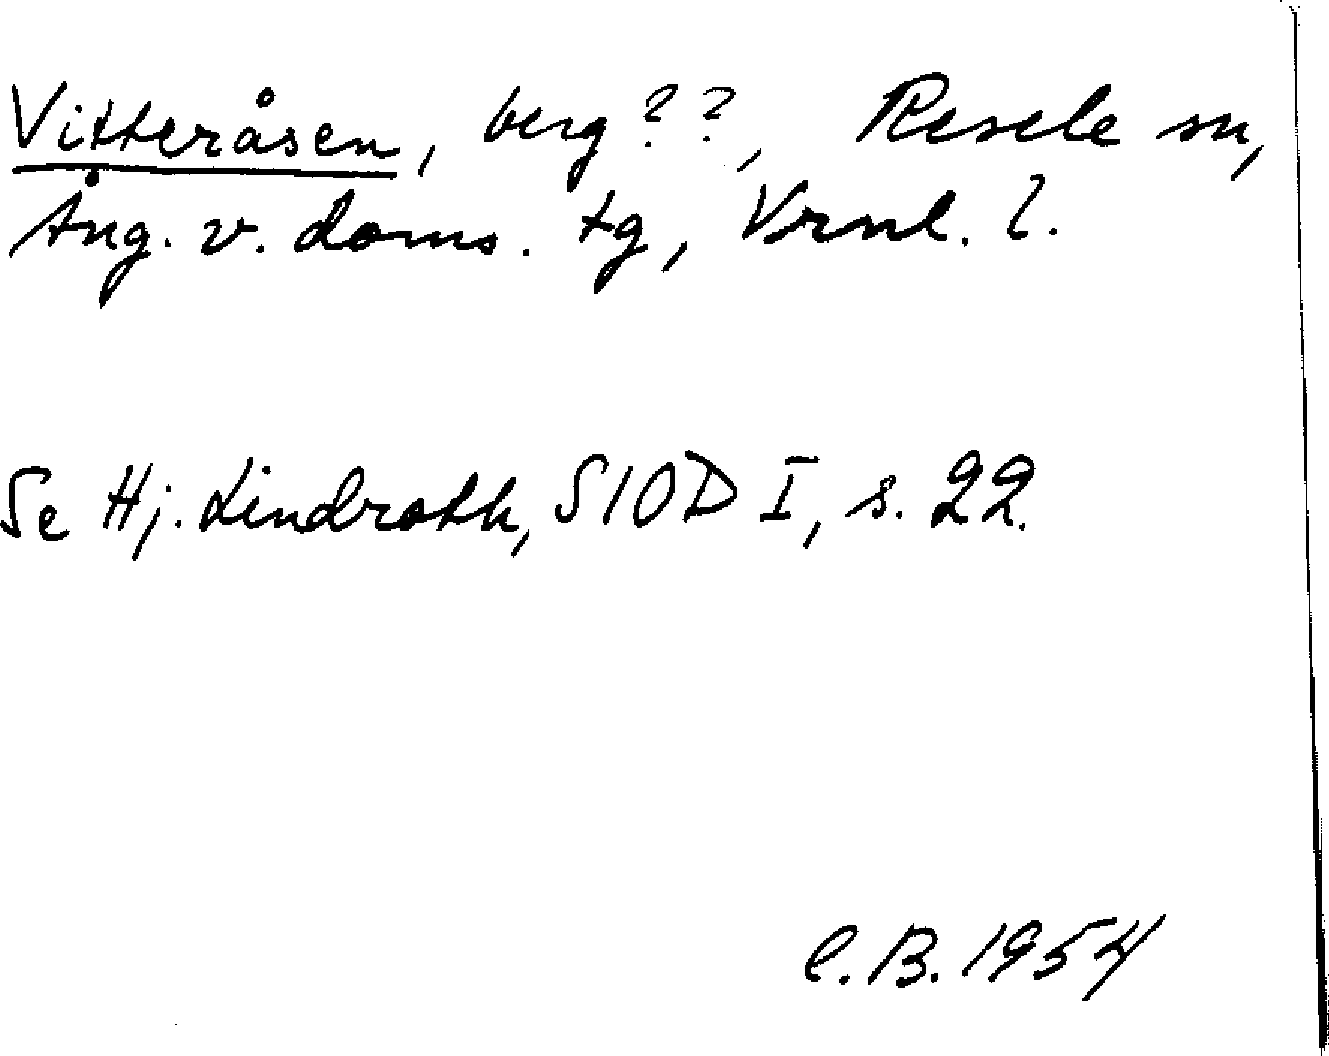 Vitteråsen, berg ??, Resele sn,
Ång. v. doms. tg, Vrnl. l.
Se Hj. Lindroth, SIOD I, s. 22.
C.B. 1954